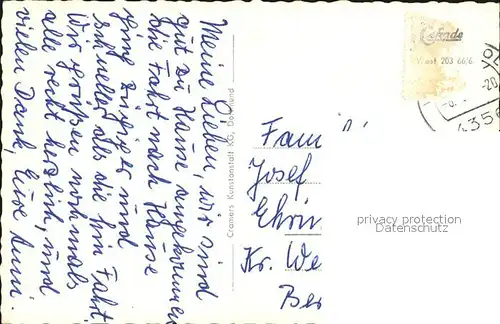 Meine Lieben, wir sind
gut zu Hause angekommen
die Fahrt nach Hause
ging zügiger und
schneller als die hin Fahrt
Wir grüßen nochmals
alle recht herzlich, und
vielen Dank, Eure Anni
Cramers Kunstanstalt KG, Dortmund
Cekade
203 66/6
4356
Fam
Josef
Ehrin
Kr. We
Ber
privacy protection
Datenschutz